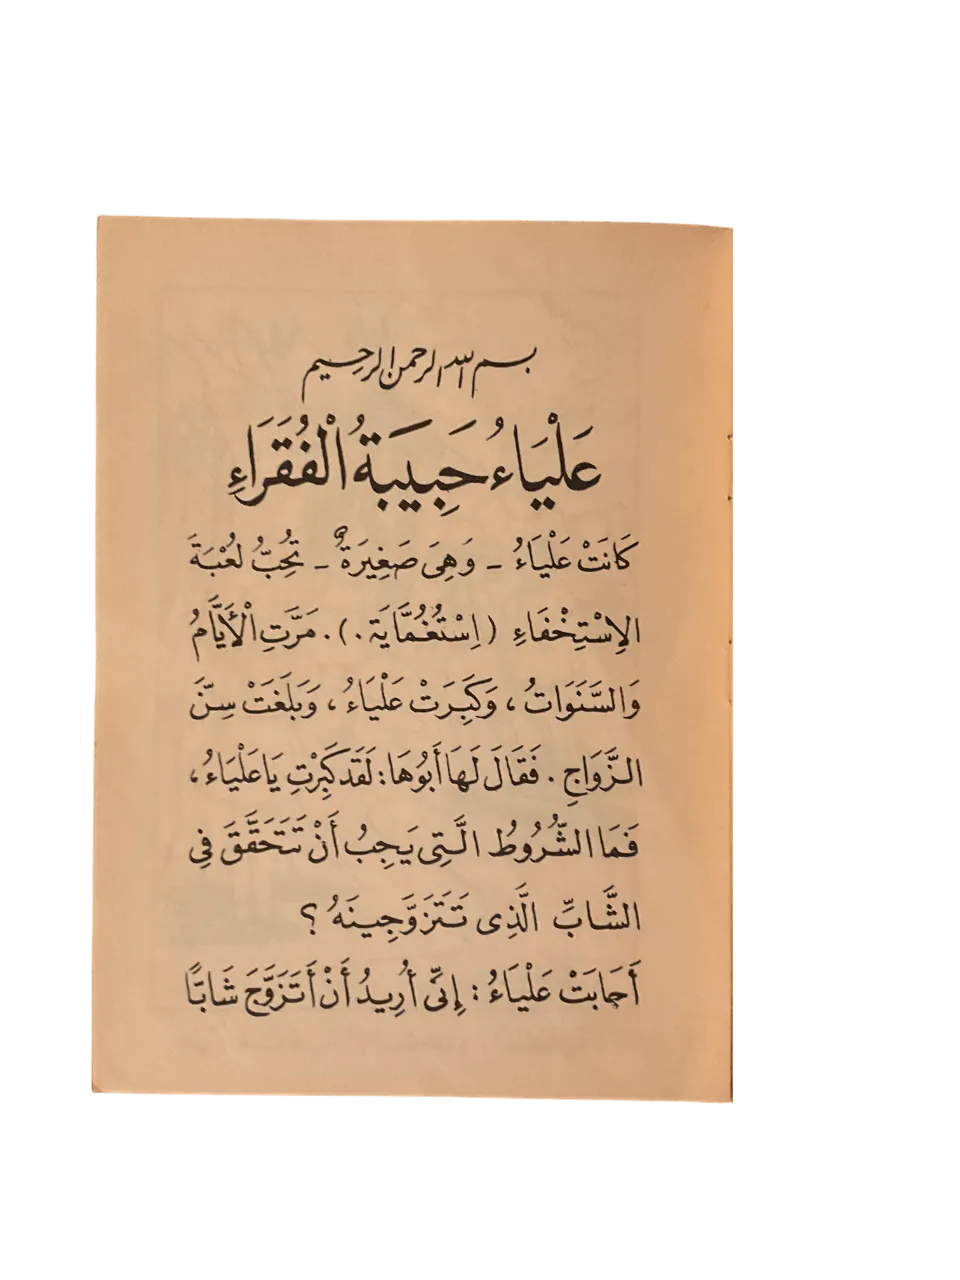 بسم الله الرحمن الرحيم
عَلْيَاءُ حَبِيبَةُ الْفُقَرَاءِ
كَانَتْ عَلْيَاءُ - وَهِيَ صَغِيرَةٌ - تُحِبُّ لُعْبَةَ
الِاسْتِخْفَاءِ (اِسْتُغُمَّايَة.). مَرَّتِ الْأَيَّامُ
وَالسَّنَوَاتُ، وَكَبِرَتْ عَلْيَاءُ، وَبَلَغَتْ سِنَّ
الزَّوَاجِ. فَقَالَ لَهَا أَبُوهَا: لَقَد كَبِرْتِ يَا عَلْيَاءُ،
فَمَا الشُّرُوطُ الَّتِى يَجِبُ أَنْ تَتَحَقَّقَ فِى
الشَّابِّ الَّذِى تَتَزَوَّجِينَهُ؟
أَجَابَتْ عَلْيَاءُ: إِنِّى أُرِيدُ أَنْ أَتَزَوَّجَ شَابًّا